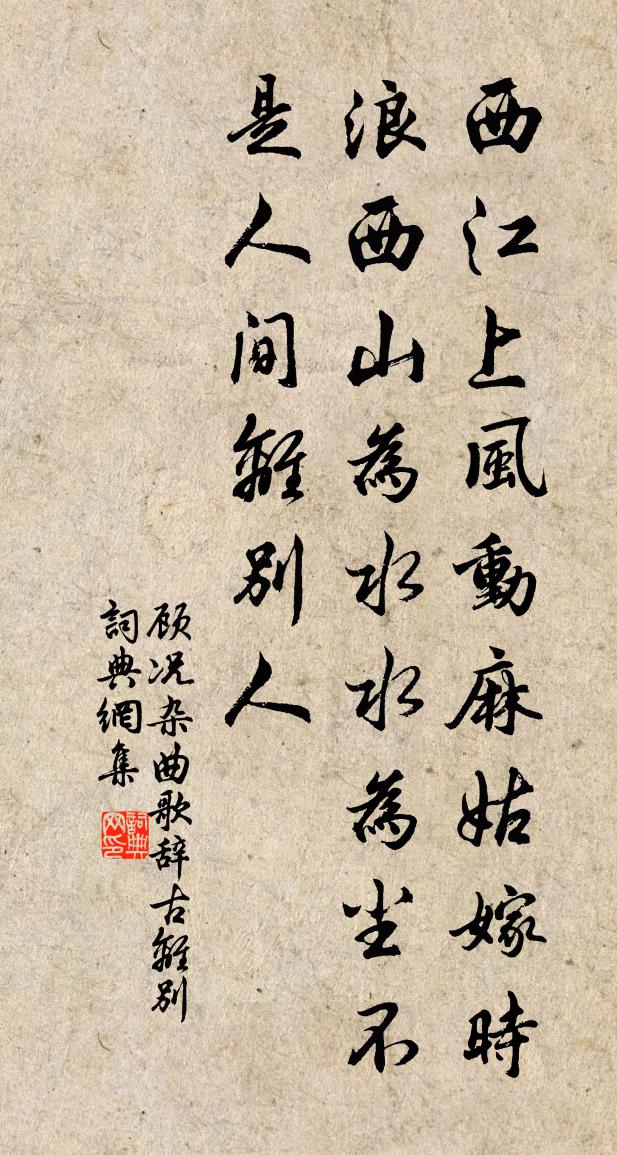 西江上風動麻姑嫁時
浪西山為水水為尘不
是人间離别人
顾况杂曲歌辞古離别
詞典網集
詞典
网印